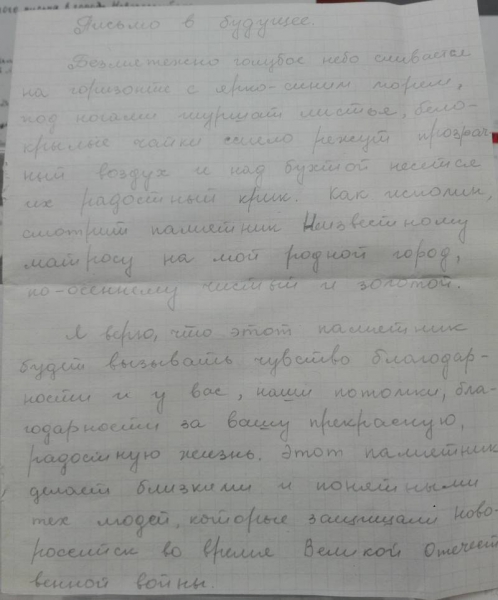 Письмо в будущее.
Безмятежно голубое небо сливается
на горизонте с ярко-синим морем,
под ногами шуршат листья, бело-
крылые чайки смело режут прозрач
ный воздух и над бухтой несется
их радостный крик. Как исполин,
смотрит памятник Неизвестному
матросу на мой родной город,
по-осеннему чистый и золотой.
Я верю, что этот памятник
будет вызывать чувство благодар-
ности и у вас, наши потомки, бла-
годарности за вашу прекрасную,
радостную жизнь. Этот памятник
делает близкими и понятными
тех людей, которые защищали Ново-
российск во время Великой Отечест
венной войны.